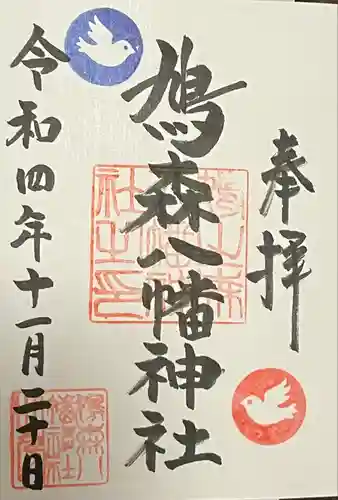 奉拝
鳩森八幡神社
令和四年十一月二十日